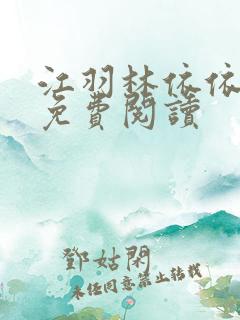 江羽林依依
免費閱讀
鄧姑閑
未經同意禁止轉載